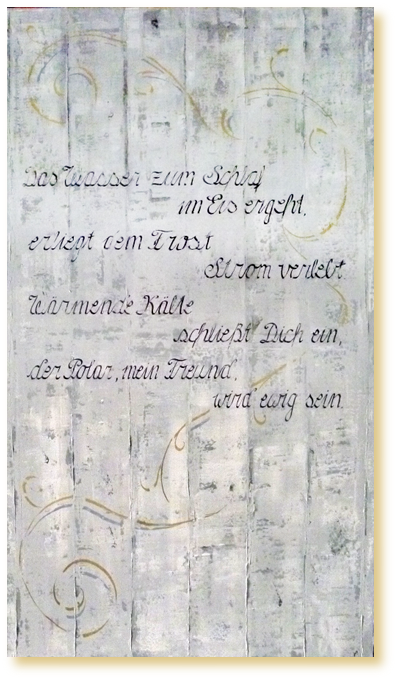 Das Wasser zum Schlaf
im Eis ergeht,
erliegt dem Frost
Strom verlebt.
Wärmende Kälte
schließt Dich ein,
der Polar, mein Freund,
wird ewig sein.